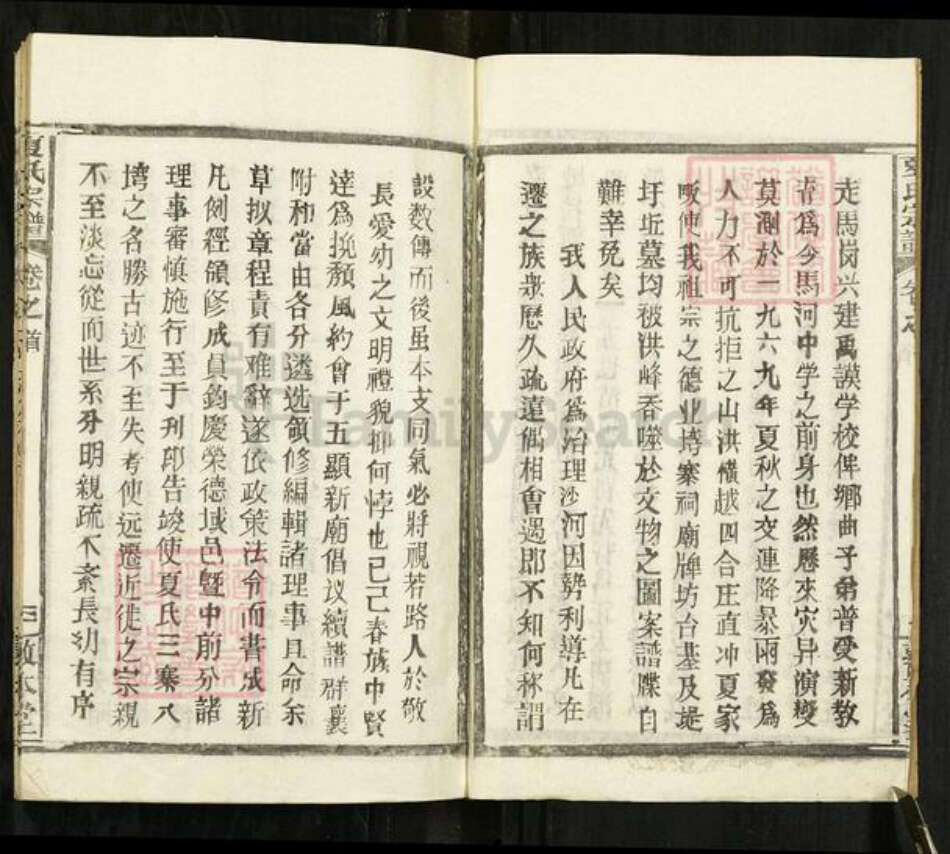 走馬岗兴建禹謨学校俾鄉曲子弟普受新教
育爲今馬河中学之前身也然歷來灾异演變
莫測於一九六九年夏秋之交連降暴雨發爲
人力不可抗拒之山洪橫越四合庄直冲夏家
畈使我祖宗之德业塼寨祠廟牌坊台基及堤
圩坵墓均被洪峰吞噬於文物之圖案譜牒自
難幸免矣
我人民政府爲治理沙河因勢利導凡在
遷之族衆歷久疏遠偶相會遇郎不知何称謂
設数傳而後虽本支同氣必將視若路人於敬
長愛幼之文明禮貌抑何悖也己巳春族中賢
達爲挽頹風約會于五顯新廟倡议續譜群襄
附和當由各分遴选領修編輯諸理事且命余
草拟章程責有难辭遂依政策法令而書成新
凡例經領修成員鈞慶榮德域邑暨中前分諸
理事審慎施行至于刋印告竣使夏氏三寨八
塆之各勝古迹不至失考使远遷近徙之宗親
不至淡忘從而世系分明親疏不紊長幼有序
夏氏宗譜
卷之首
三
敦本堂
FamilySearch